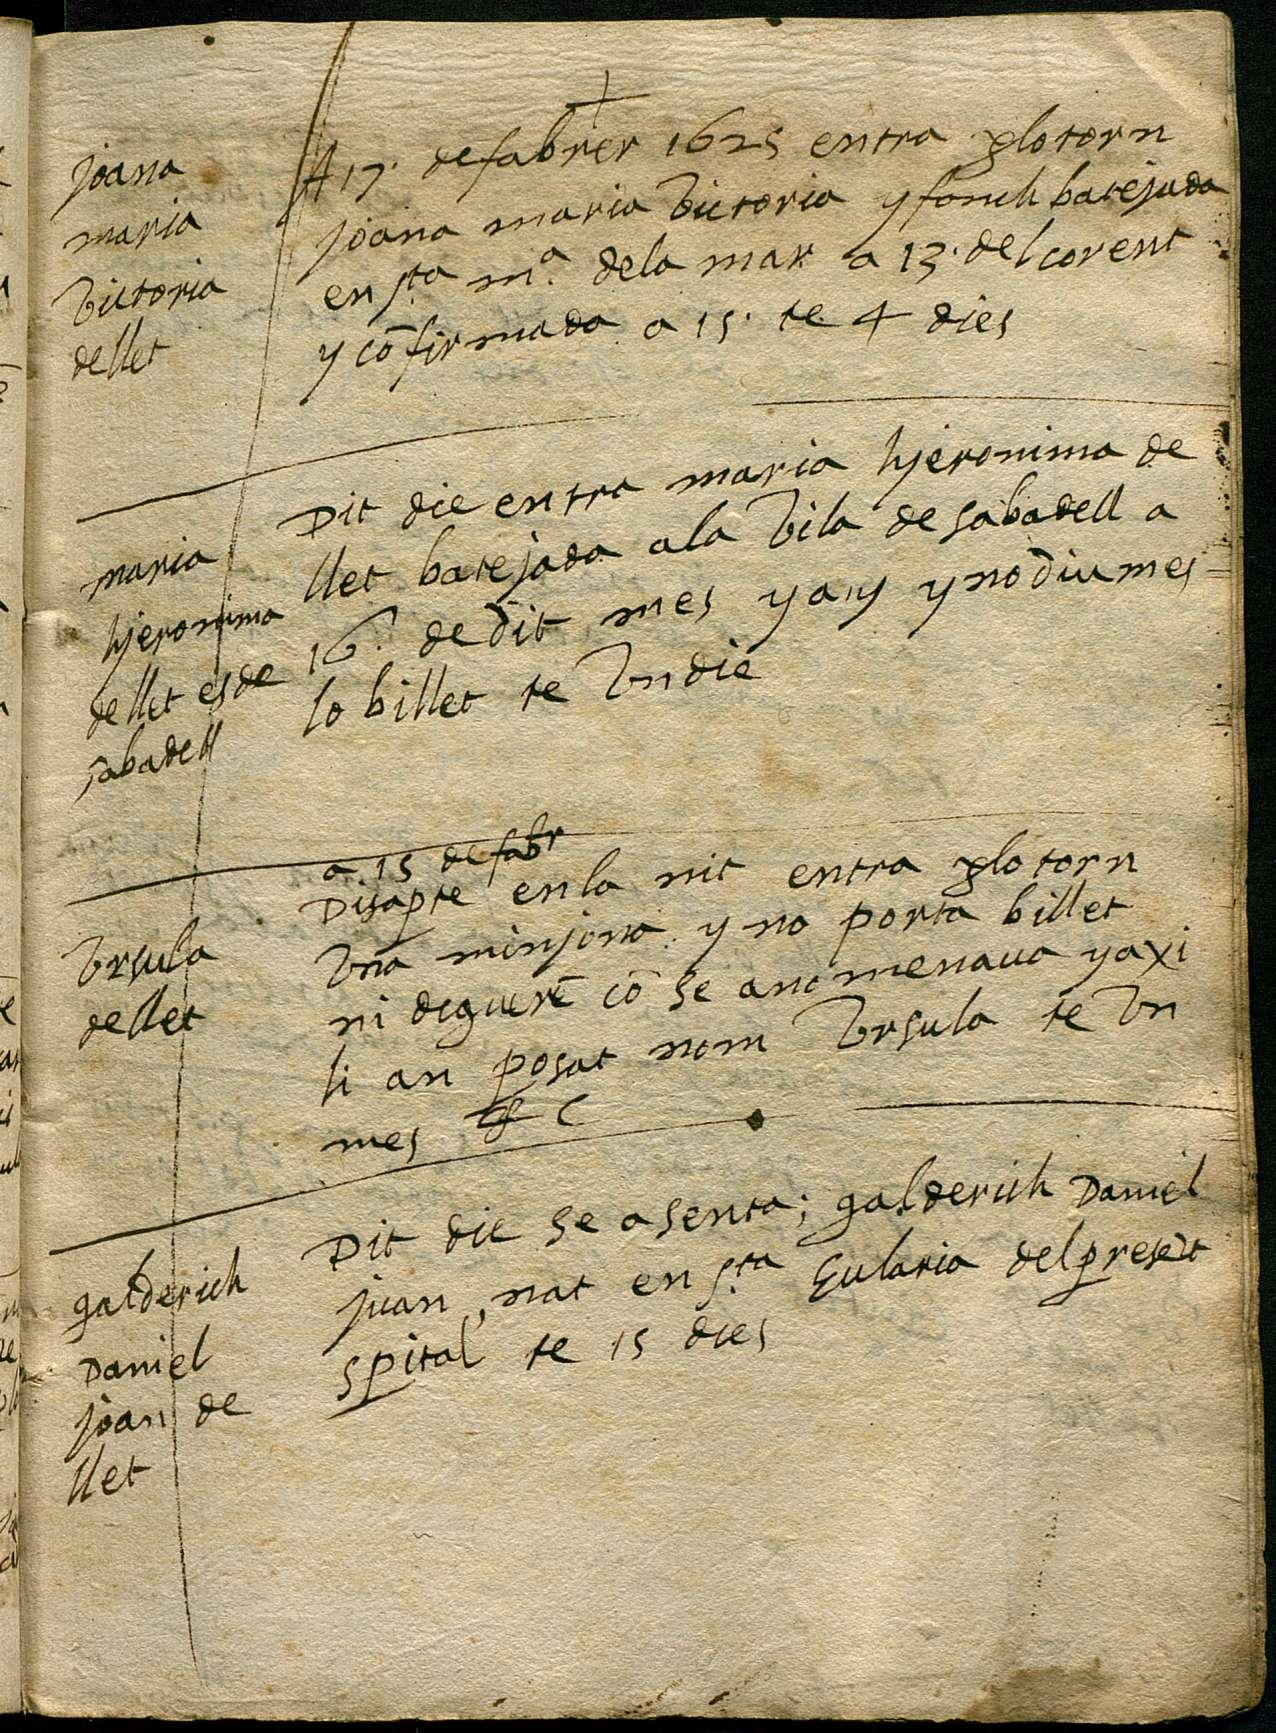 Joana
maria
Victoria
dellet
A 17. de fabrer 1625 entra xlo torn
Joana maria Victoria y fonch batejada
en sta ma. dela mar a 13. del corent
y cōfirmada a 15. te 4 dies
maria
hjeronima
dellet es de
sabadell
Dit die entra maria hjeronima de
llet batejada ala Vila de sabadell a
16. de dit mes y añ y no diu mes
lo billet te Vn die
Vrsula
dellet
a 15 de fabr
Disapte en la nit entra xlo torn
Vna minjona y no porta billet
ni degueṝe cō se anomenaua y axi
li an posat nom Vrsula te Vn
mes & C
galderich
Daniel
joan de
llet
Dit die se asenta; galderich Daniel
juan, nat en sta Eularia del presēt
spital te 15 dies